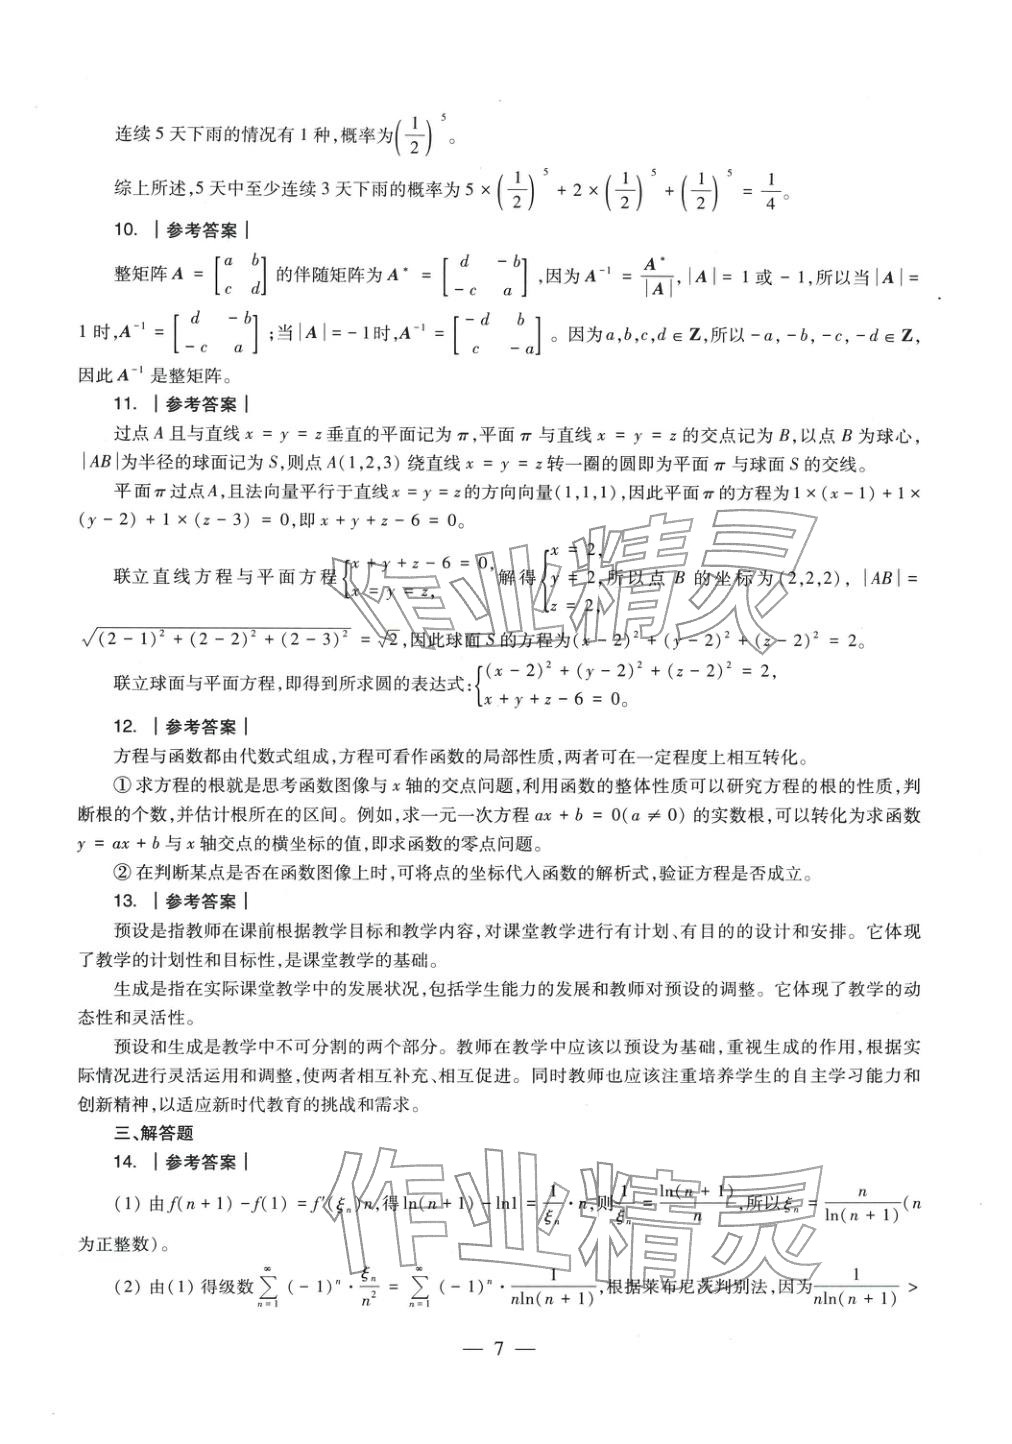 连续 5 天下雨的情况有 1 种,概率为(1/2)^5。
综上所述,5 天中至少连续 3 天下雨的概率为 5 × (1/2)^5 + 2 × (1/2)^5 + (1/2)^5 = 1/4。
10. 丨参考答案丨
整矩阵 A = [a b; c d] 的伴随矩阵为 A* = [d -b; -c a],因为 A^-1 = A*/|A|,|A| = 1 或 - 1,所以当|A| =
1 时,A^-1 = [d -b; -c a];当|A| = - 1时,A^-1 = [-d b; c -a]。因为a,b,c,d ∈ Z,所以 - a, - b, - c, - d ∈ Z,
因此 A^-1 是整矩阵。
11. 丨参考答案丨
过点 A 且与直线 x = y = z 垂直的平面记为 π,平面 π 与直线 x = y = z 的交点记为 B,以点 B 为球心,
|AB|为半径的球面记为 S,则点 A(1,2,3) 绕直线 x = y = z 转一圈的圆即为平面 π 与球面 S 的交线。
平面π过点A,且法向量平行于直线x = y = z的方向向量(1,1,1),因此平面π的方程为1 × (x - 1) + 1 ×
(y - 2) + 1 × (z - 3) = 0,即 x + y + z - 6 = 0。
联立直线方程与平面方程{x + y + z - 6 = 0, x = y = z,解得{x = 2, y = 2, z = 2,所以点 B 的坐标为(2,2,2), |AB| =
√((2 - 1)^2 + (2 - 2)^2 + (2 - 3)^2) = √2,因此球面 S 的方程为(x - 2)^2 + (y - 2)^2 + (z - 2)^2 = 2。
联立球面与平面方程,即得到所求圆的表达式:{(x - 2)^2 + (y - 2)^2 + (z - 2)^2 = 2, x + y + z - 6 = 0。
12. 丨参考答案丨
方程与函数都由代数式组成,方程可看作函数的局部性质,两者可在一定程度上相互转化。
① 求方程的根就是思考函数图像与 x 轴的交点问题,利用函数的整体性质可以研究方程的根的性质,判
断根的个数,并估计根所在的区间。例如,求一元一次方程 ax + b = 0(a ≠ 0) 的实数根,可以转化为求函数
y = ax + b 与 x 轴交点的横坐标的值,即求函数的零点问题。
② 在判断某点是否在函数图像上时,可将点的坐标代入函数的解析式,验证方程是否成立。
13. 丨参考答案丨
预设是指教师在课前根据教学目标和教学内容,对课堂教学进行有计划、有目的的设计和安排。它体现
了教学的计划性和目标性,是课堂教学的基础。
生成是指在实际课堂教学中的发展状况,包括学生能力的发展和教师对预设的调整。它体现了教学的动
态性和灵活性。
预设和生成是教学中不可分割的两个部分。教师在教学中应该以预设为基础,重视生成的作用,根据实
际情况进行灵活运用和调整,使两者相互补充、相互促进。同时教师也应该注重培养学生的自主学习能力和
创新精神,以适应新时代教育的挑战和需求。
三、解答题
14. 丨参考答案丨
(1) 由f(n + 1) - f(1) = f′(ξn)n,得ln(n + 1) - ln1 = 1/ξn · n,则 1/ξn = ln(n + 1)/n,所以ξn = n/ln(n + 1)(n
为正整数)。
(2) 由(1) 得级数 ∑(n=1→∞) (- 1)^n · ξn/n^2 = ∑(n=1→∞) (- 1)^n · 1/(nln(n + 1)),根据莱布尼茨判别法,因为 1/(nln(n + 1)) >
— 7 —
作业精灵
作业精灵